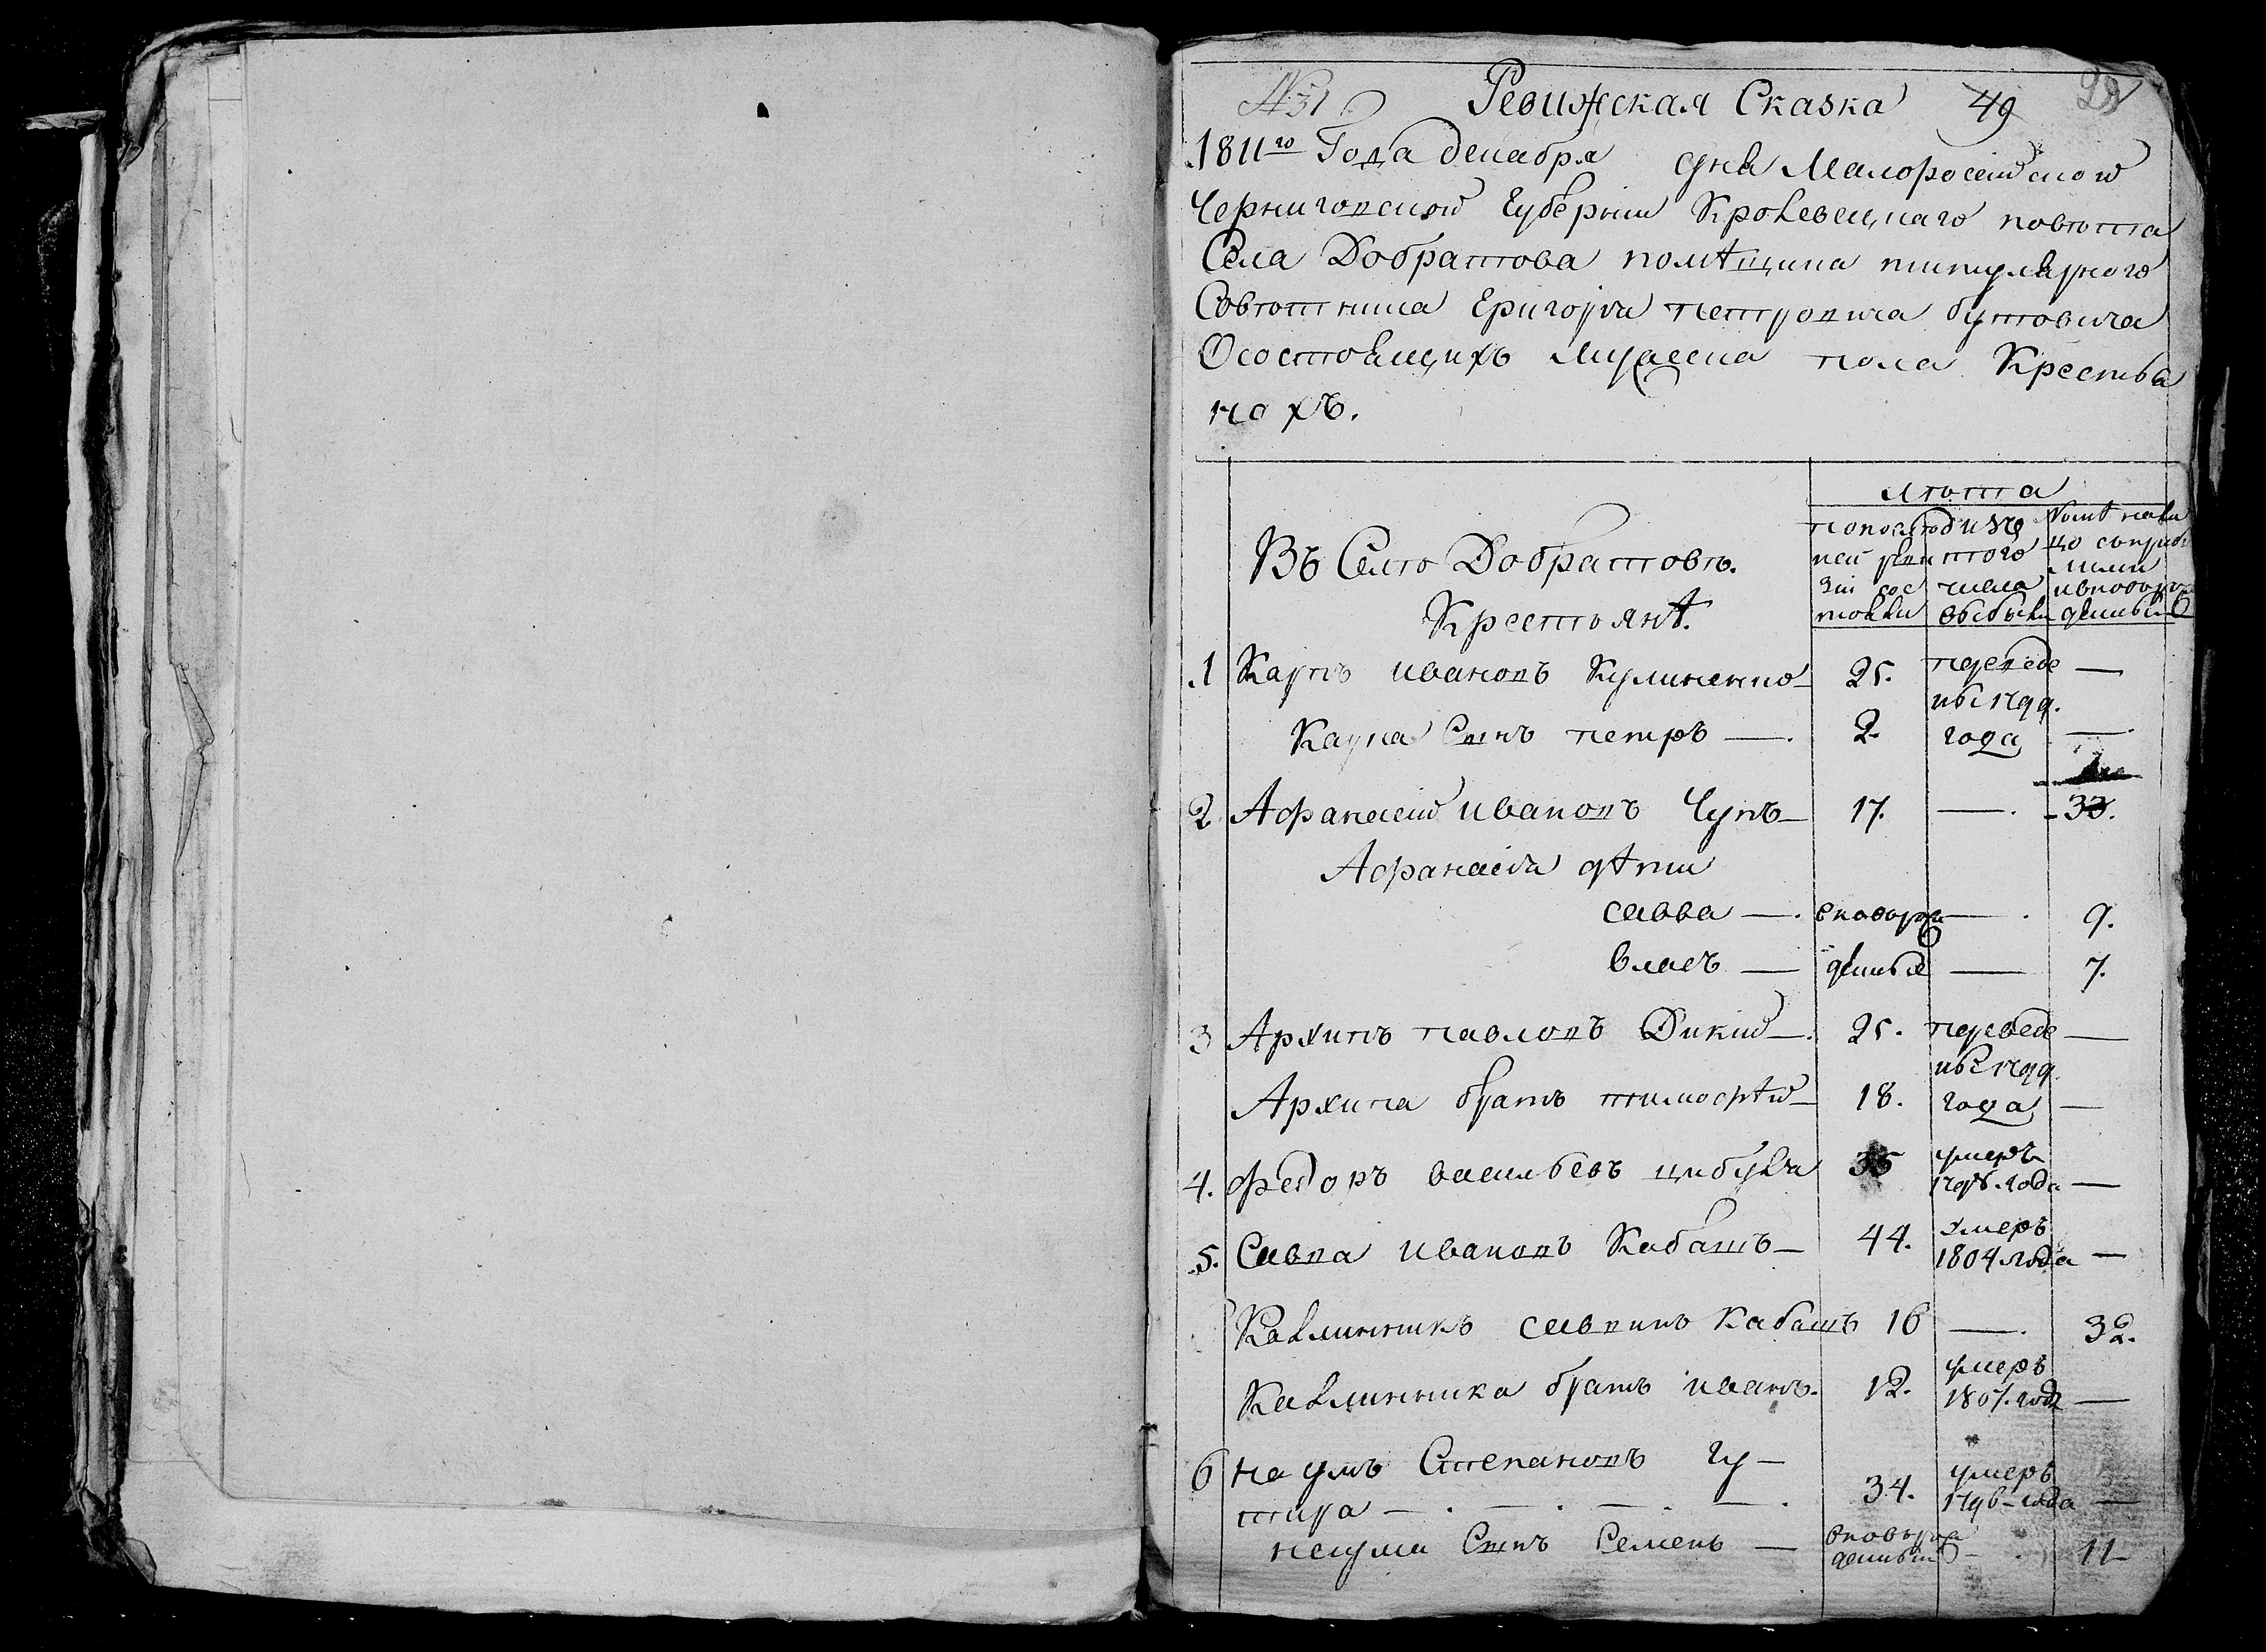 №31 Ревижская Сказка 49
1811го Года декабря дня Малоросейской
Черниговской Губернии Кролевецкаго повѣта
Села Добратова помѣщика титулярного
Совѣтника Григорія петровича бутовича
Осостоящихъ мужеска пола Крестья
нахъ.
Лѣта
Въ Селѣ Добратовѣ.
Крестьянѣ.
попослѣд
ней реви
зіи сос
тояли
изъ
того
числа
выбыли
1 Карпъ ивановъ Кулиненко 25. переведе
ны 1799.
Карпа Сынъ петръ — 2. года —
2 Афанасій ивановъ Чупъ — 17. — 33.
Афанасія дѣти
савва — вновьро — 9.
власъ — жденные — 7.
3 Архипъ павловъ Дикій — 25. переведе —
ны 1799
Архипа братъ тимофѣй — 18. года —
4. федоръ васильевъ цибуля 35 умеръ
1796. года —
5. Савва ивановъ Кабашъ — 44. умеръ
1804 года —
Калинникъ саввинъ Кабашъ 16 — 32.
Калинника братъ иванъ. 12. умеръ
1807. года —
6 наумъ Степановъ Гу —
тира — 34. умеръ
1796 — года —
наума Сынъ Семенъ — вновьро
жденный — 11